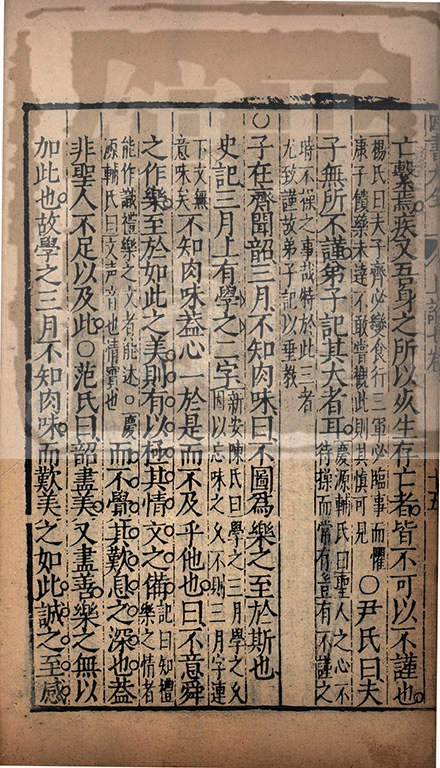 亡繫焉疾又吾身之所以死生存亡者皆不可以不謹也
楊氏曰夫子齊必變食行三軍必臨事而懼
康子饋藥未達不敢嘗觀此則其慎可見
○尹氏曰夫
子無所不謹弟子記其大者耳
慶源輔氏曰聖人之心不
待操而常存豈有不謹之
時不保之事哉特於此三者
尤致謹故弟子記以垂教
○子在齊聞韶三月不知肉味曰不圖為樂之至於斯也
史記三月上有學之二字
新安陳氏曰學之三月學之久
因以忘味之久不則三月字連
下文無
意味矣
不知肉味葢心一於是而不及乎他也曰不意舜
之作樂至於如此之美則有以極其情文之備
記曰知禮
樂之情者
能作識禮樂之文者能述○慶
源輔氏曰文聲音也情實也
而不覺其歎息之深也葢
非聖人不足以及此○范氏曰韶盡美又盡善樂之無以
如此也故學之三月不知肉味而歎美之如此誠之至感